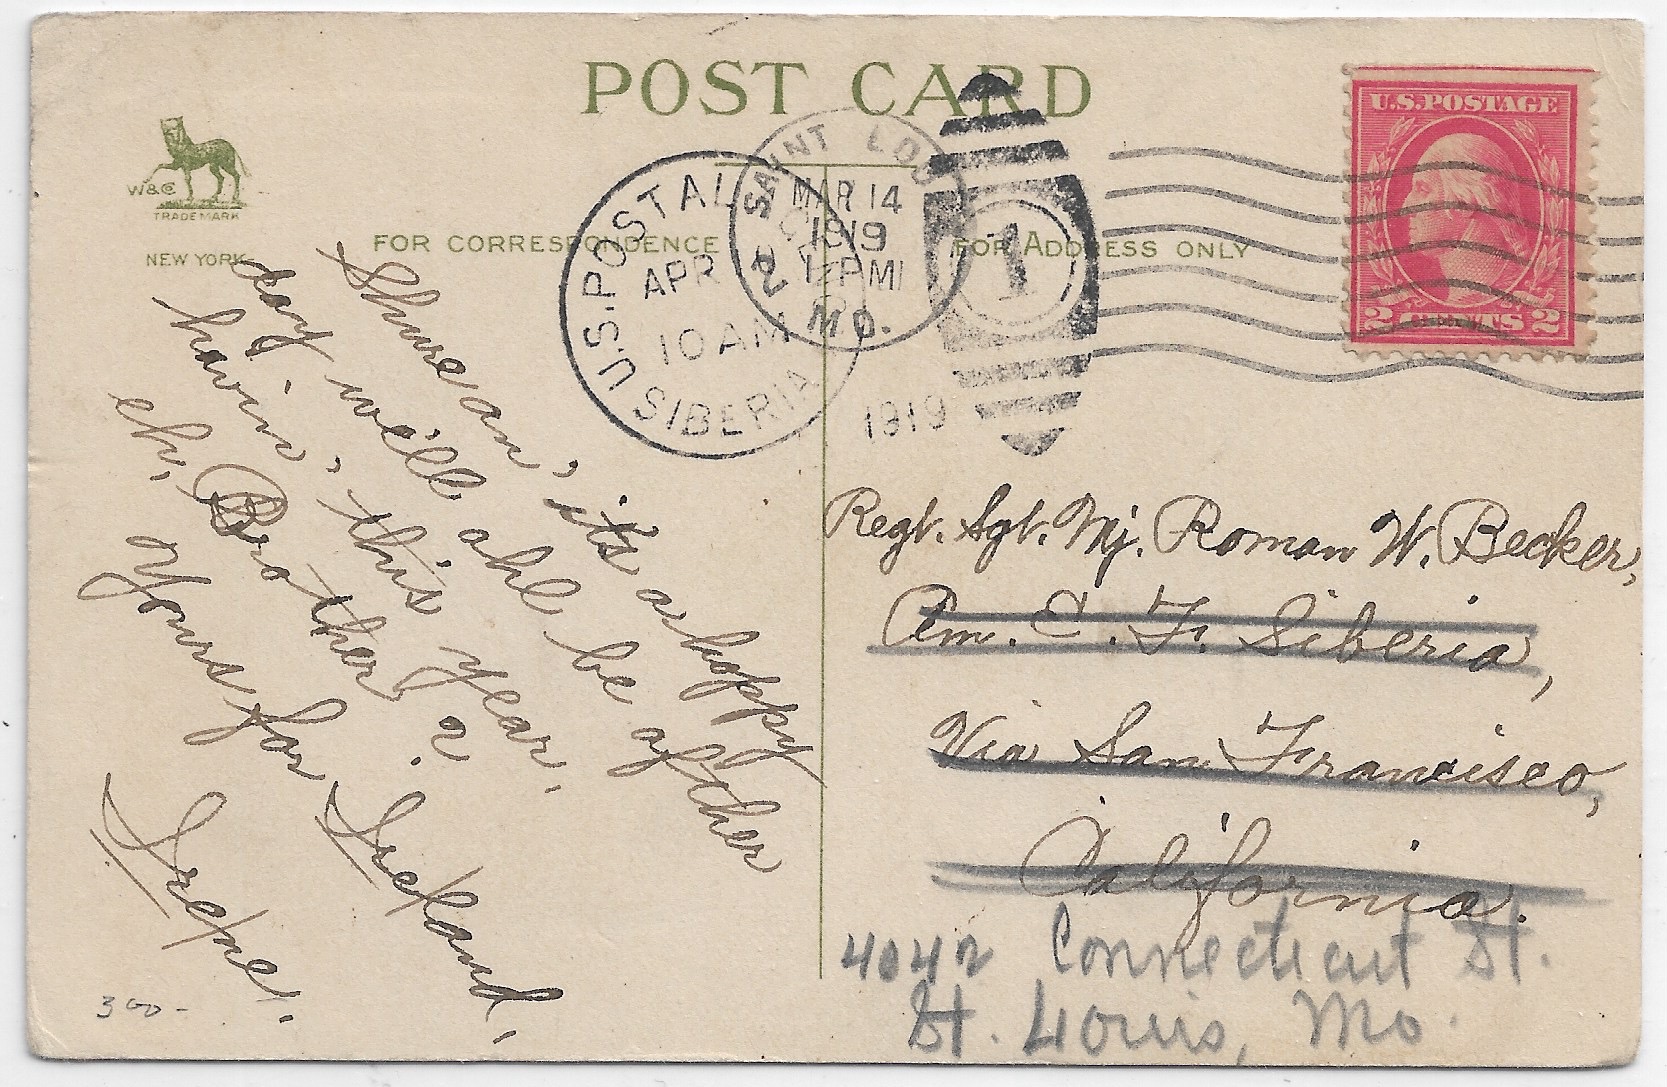 POST CARD
W&Co
TRADE MARK
NEW YORK
FOR CORRESPONDENCE
FOR ADDRESS ONLY
U.S. POSTAL
APR
10 AM
SIBERIA
1919
SAINT LOU
MAR 14
1919
12 PM
MO.
1
U.S. POSTAGE
2 CENTS 2
Shure an', its a happy
day we'll ahl be after
havin', this year,
eh, Brother?
Yours for Ireland,
Irene.
300-
Regt. Sgt. Mj. Roman W. Becker,
Am. E. F. Siberia,
Via San Francisco,
California.
4042 Connecticut St.
St. Louis, Mo.